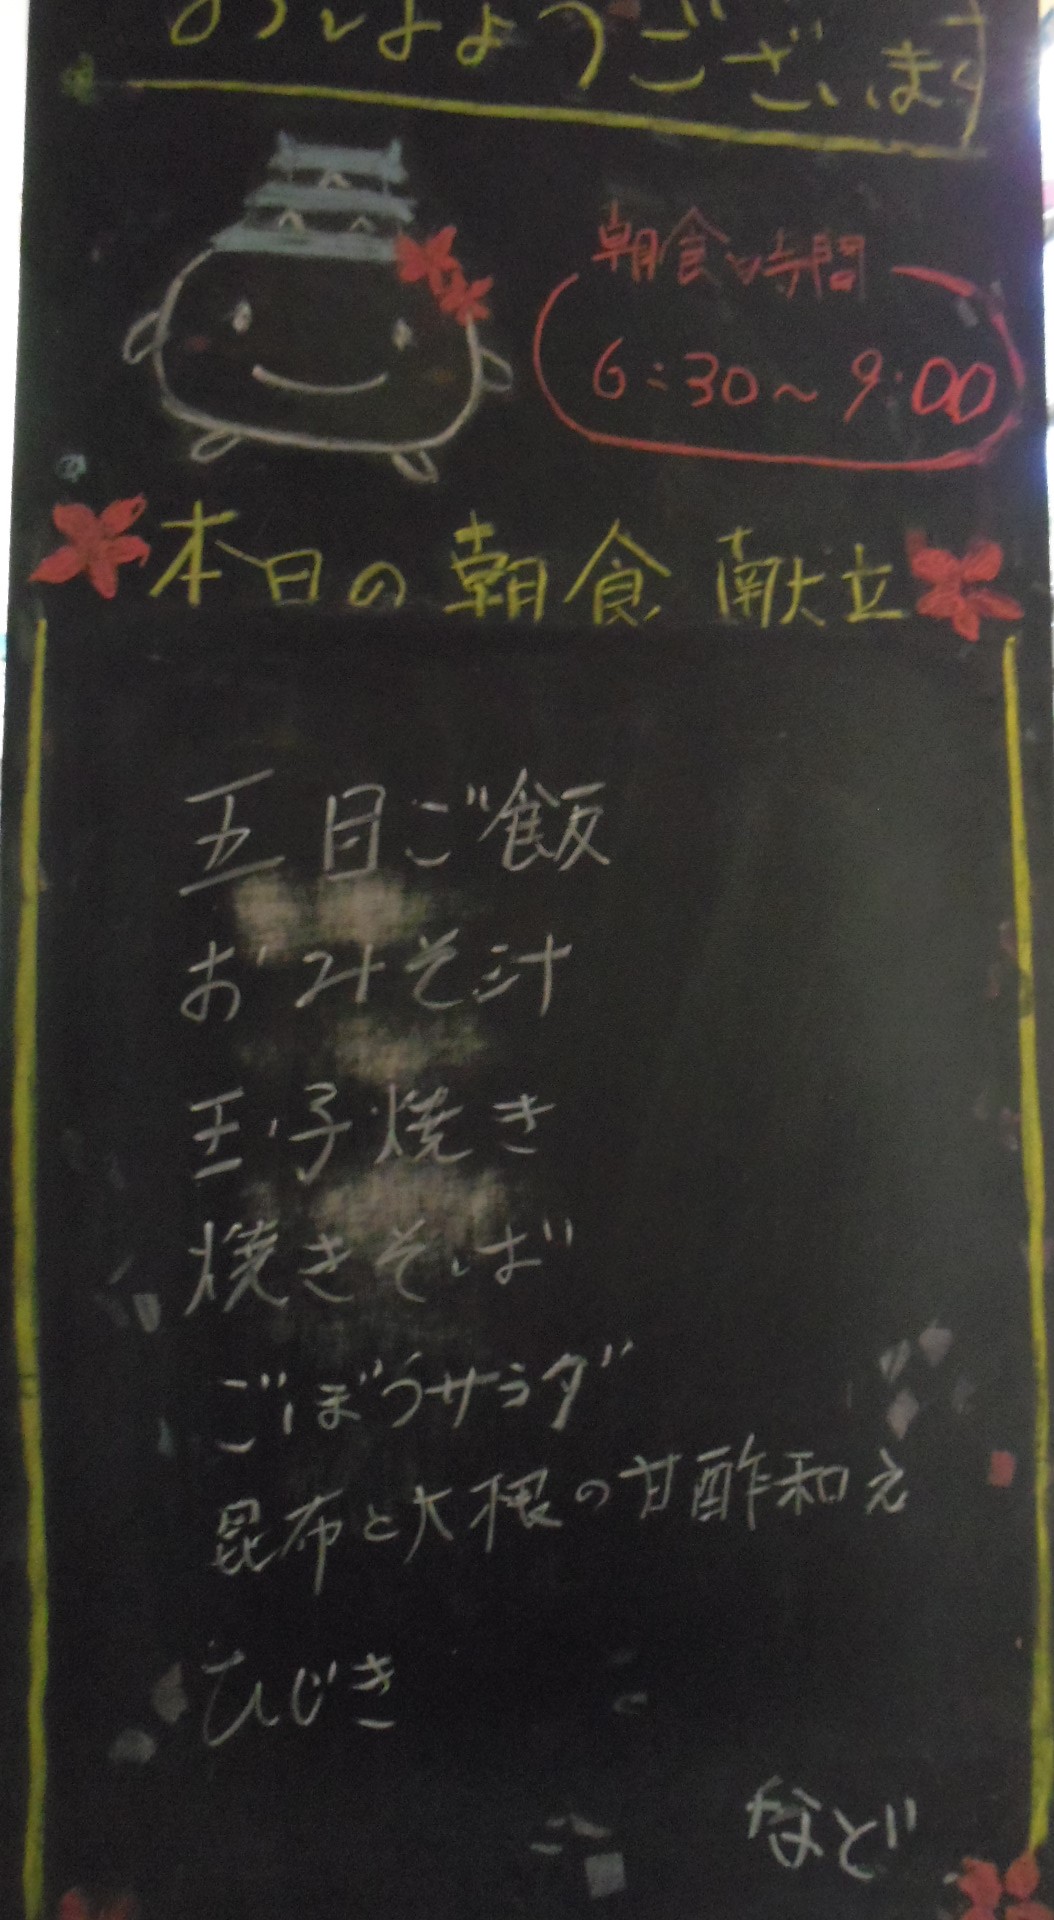 おはようございます
朝食時間
6:30～9:00
本日の朝食献立
五目ご飯
おみそ汁
玉子焼き
焼きそば
ごぼうサラダ
昆布と大根の甘酢和え
ひじき
など